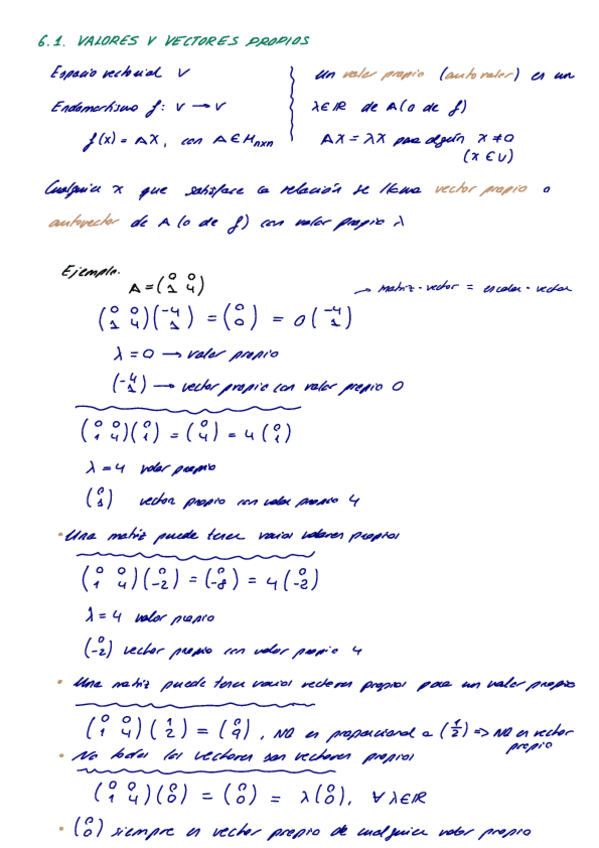 6.1. VALORES Y VECTORES PROPIOS
Espacio vectorial V
Endomorfismo f: V → V
f(x) = AX, con A ∈ M_{nxn}
un valor propio (autovalor) es un
λ∈IR de A (o de f)
AX = λX para algún X ≠ 0
(X ∈ V)
Cualquier x que satisface la relación se llama vector propio o
autovector de A (o de f) con valor propio λ
Ejemplo.
A = (0 0; 1 4)
→ matriz · vector = escalar · vector
(0 0; 1 4)(-4; 1) = (0; 0) = 0(-4; 1)
λ = 0 → valor propio
(-4; 1) → vector propio con valor propio 0
(0 0; 1 4)(0; 1) = (0; 4) = 4(0; 1)
λ = 4 valor propio
(0; 1) vector propio con valor propio 4
• Una matriz puede tener varios valores propios
(0 0; 1 4)(0; -2) = (0; -8) = 4(0; -2)
λ = 4 valor propio
(0; -2) vector propio con valor propio 4
• Una matriz puede tener varios vectores propios para un valor propio
(0 0; 1 4)(1; 2) = (0; 9), NO es proporcional a (1; 2) => NO es vector
propio
• No todos los vectores son vectores propios
(0 0; 1 4)(0; 0) = (0; 0) = λ(0; 0), ∀ λ∈IR
• (0; 0) siempre es vector propio de cualquier valor propio